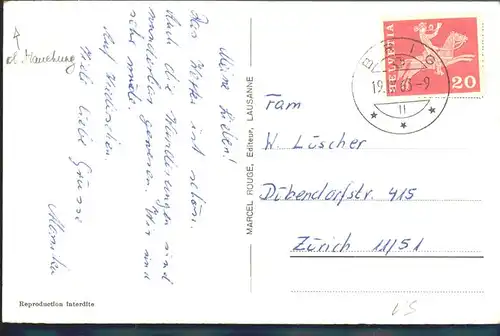 Meine Lieben!
Das Wetter ist schön.
Auch die Wanderungen sind
wunderbar gewesen. Wir sind
sehr müde.
Auf Wiedersehen.
Viele liebe Grüsse
Monika
Reproduction interdite
MARCEL ROUGE, Editeur, LAUSANNE
HELVETIA
20
BRIG
19.
65-9
Fam
W. Lüscher
Dübendorfstr. 415
Zürich 11/51